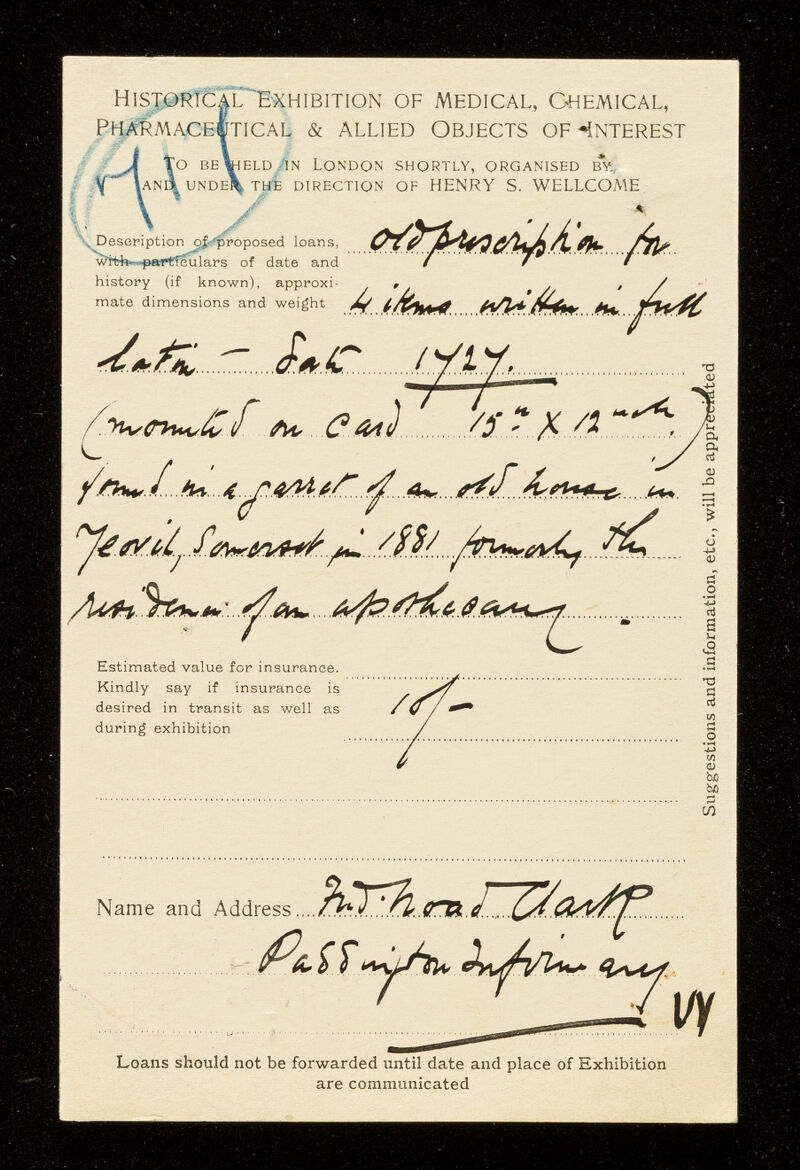 HISTORICAL EXHIBITION OF MEDICAL, CHEMICAL,
PHARMACEUTICAL & ALLIED OBJECTS OF INTEREST
TO BE HELD IN LONDON SHORTLY, ORGANISED BY,
AND UNDER THE DIRECTION OF HENRY S. WELLCOME
Description of proposed loans,
with particulars of date and
history (if known), approxi-
mate dimensions and weight
old prescription for
4 items written in full
latin — date 1727.
(mounted on card 15" X 12 inch)
found in a garret of an old house in
Yeovil, Somerset in 1881 formerly the
residence of an apothecary.
Estimated value for insurance.
Kindly say if insurance is
desired in transit as well as
during exhibition
10/-
Name and Address Fred. Noad Clark
Paddington Infirmary
Loans should not be forwarded until date and place of Exhibition
are communicated
Suggestions and information, etc., will be appreciated